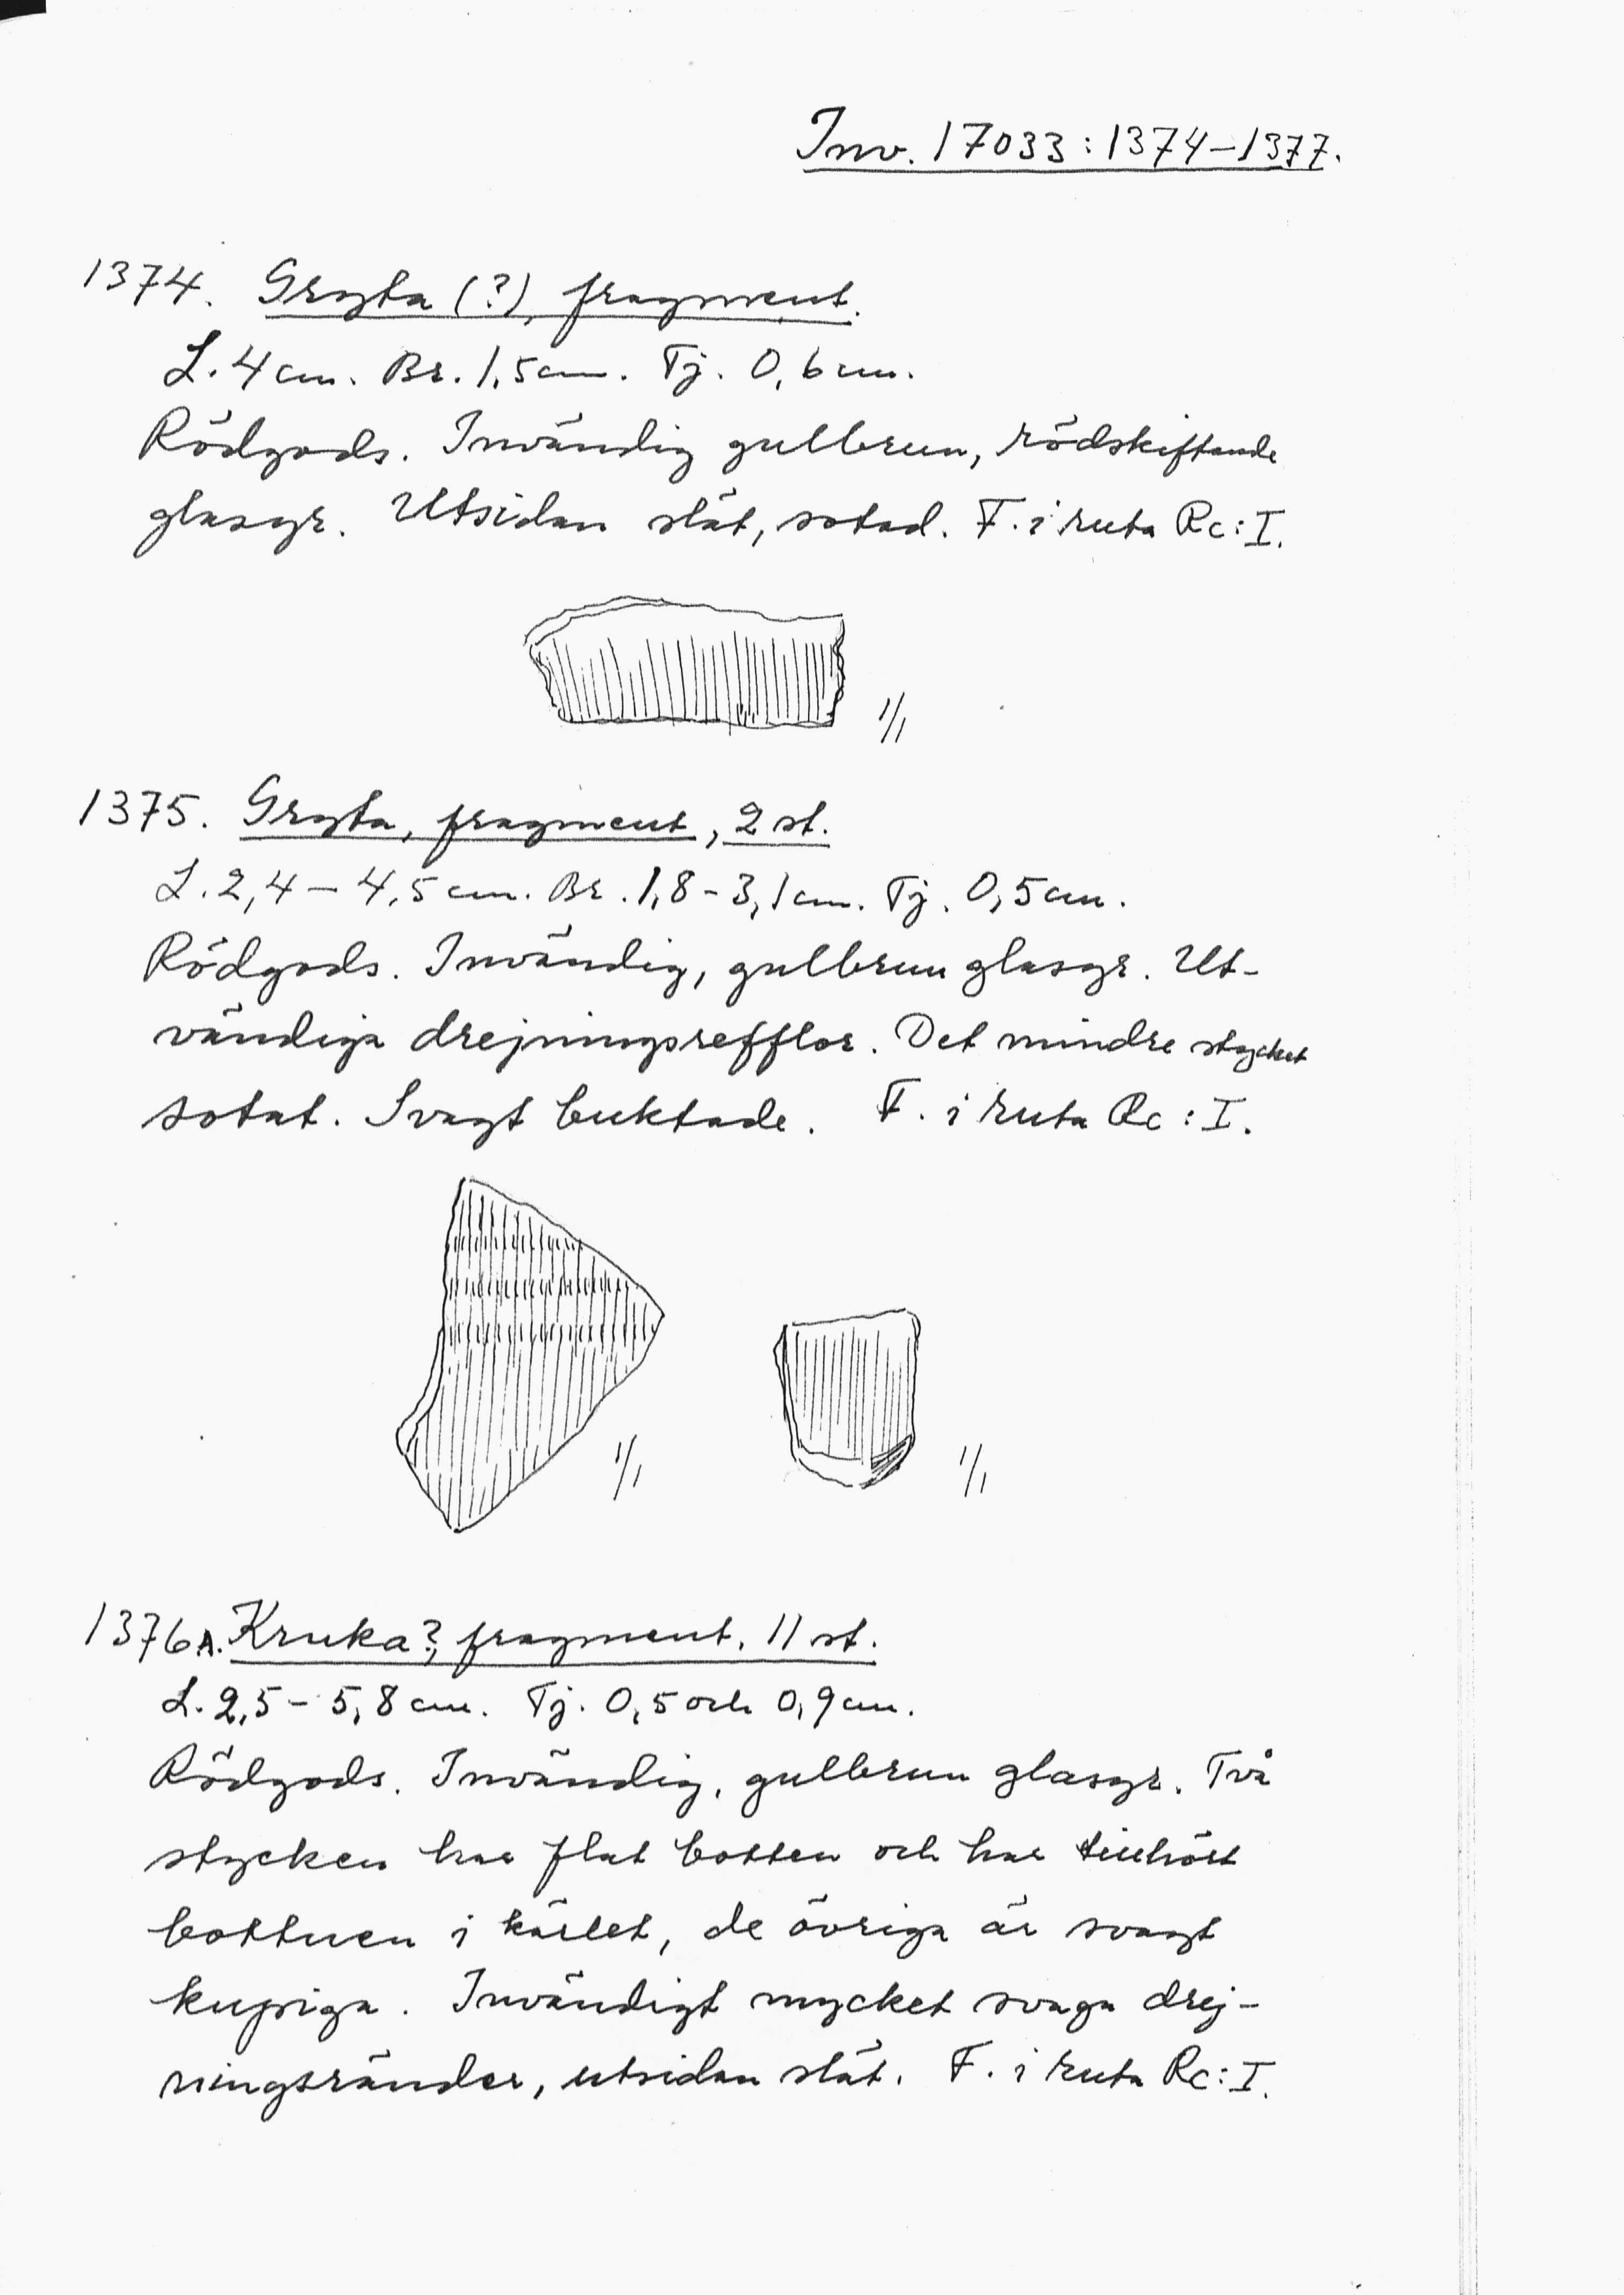 Inv. 17033:1374–1377.
1374. Gryta (?), fragment.
L. 4 cm. Br. 1,5 cm. Tj. 0,6 cm.
Rödgods. Invändig gulbrun, rödskiftande
glasyr. Utsidan slät, sotad. F. i ruta Rc:I.
1/1
1375. Gryta, fragment, 2 st.
L. 2,4 – 4,5 cm. Br. 1,8 - 3,1 cm. Tj. 0,5 cm.
Rödgods. Invändig, gulbrun glasyr. Ut-
vändiga drejningsrefflor. Det mindre stycket
sotat. Svagt buktade. F. i ruta Rc:I.
1/1 1/1
1376A. Kruka?, fragment. 11 st.
L. 2,5 - 5,8 cm. Tj. 0,5 och 0,9 cm.
Rödgods. Invändig, gulbrun glasyr. Två
stycken har flat botten och har tillhört
bottnen i kärlet, de övriga är svagt
kupiga. Invändigt mycket svaga drej-
ningsränder, utsidan slät. F. i ruta Rc:I.